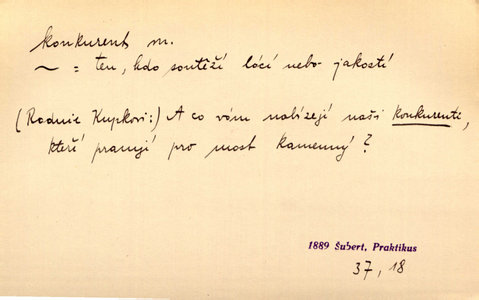 konkurent m.
~ = ten, kdo soutěží lácí nebo jakostí
(Radnic Kupkovi:) A co vám nabízejí naši konkurenti,
kteří pracují pro most kamenný?
1889 Šubert, Praktikus
37, 18